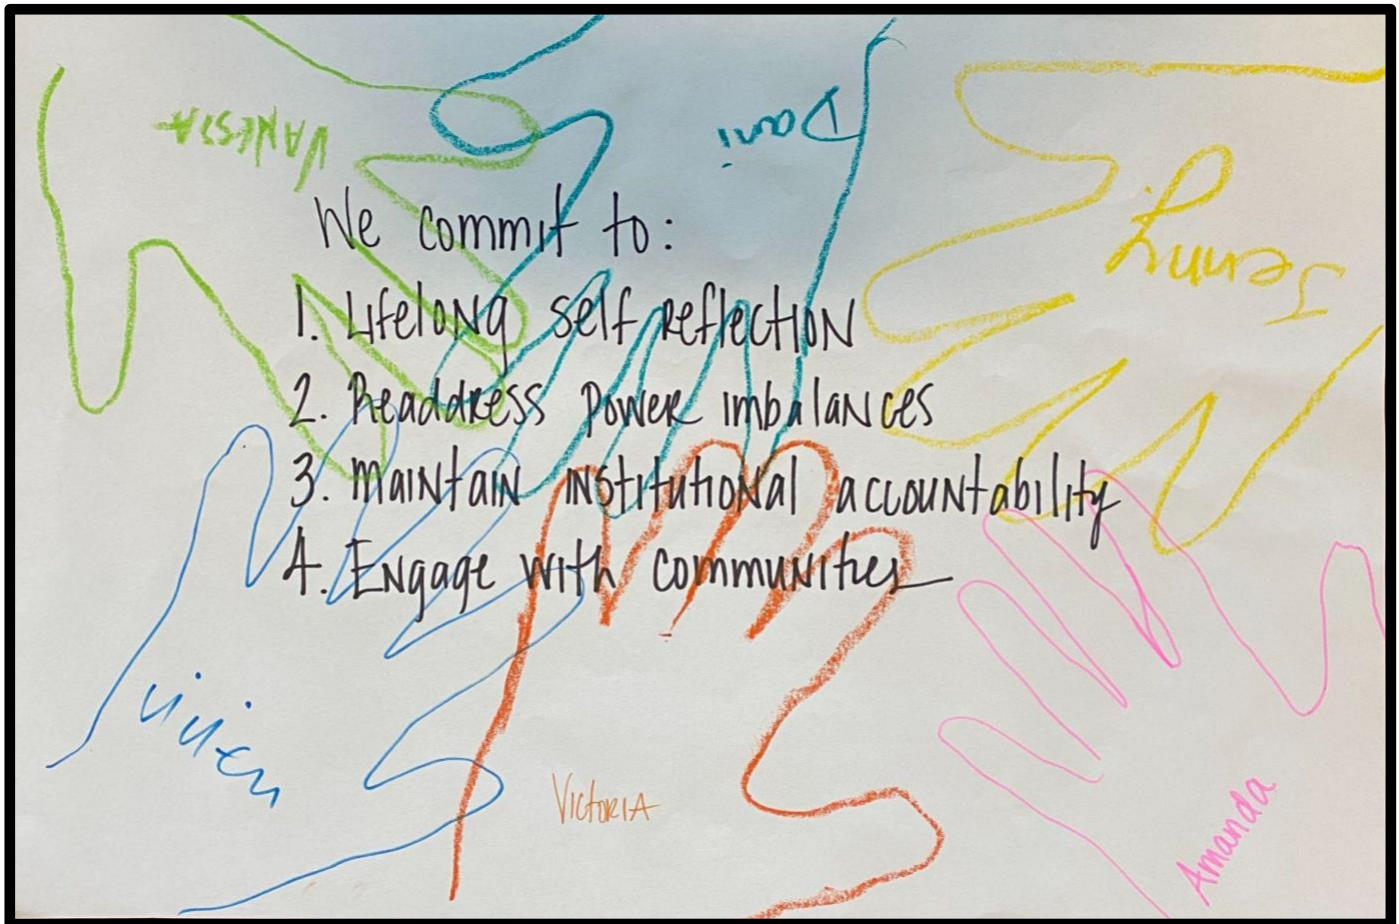 VANESSA
Dani
Jenny
We commit to:
1. Lifelong self reflection
2. Readdress power imbalances
3. Maintain institutional accountability
4. Engage with communities
Vivien
Victoria
Amanda